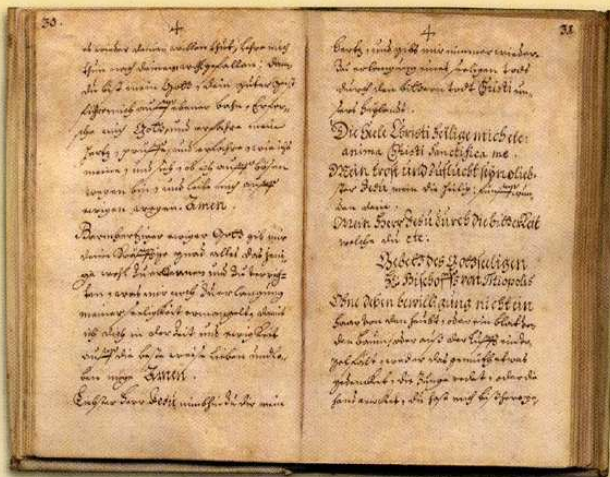 30.
es wieder deinen willen thut, lehre mich
thun nach deinem wohlgefallen: dann
du bist mein Gott, dein guter geist
führe mich auff ebener bahn, Erfor-
sche mich Gott, und erfahre mein
hertz, prüffe, und erfahre wie ichs
meine, und sihe, ob ich auff bösen
wegen bin, und leite mich auff
ewigen wegen. Amen.
Barmhertziger ewiger Gott gib mir
deine gnad alles das jeni-
ge wohl zu erlernen und zu verrich-
ten, was mir noch zu erlangung
meiner seeligkeit ermanglet, damit
ich dich in der Zeit und ewigkeit
auff die beste weise lieben und lo-
ben möge Amen.
Liebster Herr Jesu nimb hin zu dir mein
31
hertz, und gibs mir nimmer wieder.
Zu erlangung eines seeligen tods
durch den bitteren todt Christi un-
sers heylands.
Die Seele Christi heilige mich etc:
anima Christi sanctifica me.
Mein trost und zuflucht seynd lieb-
ster Jesu mein die heilig: fünff wun-
den dein.
Mein Herr Jesu durch die bitterkeit
welche du etc.
Gebett des Gottseeligen
Bischoffs von Titiopolis
Ohne deinen bewilligung nicht ein
haar von dem haubt, oder ein blat von
dem baum, oder auß der lufft ein vo-
gel fallt, weder das gemüth etwas
gedencket, die Zunge redet, oder die
hand würcket, du hast mich